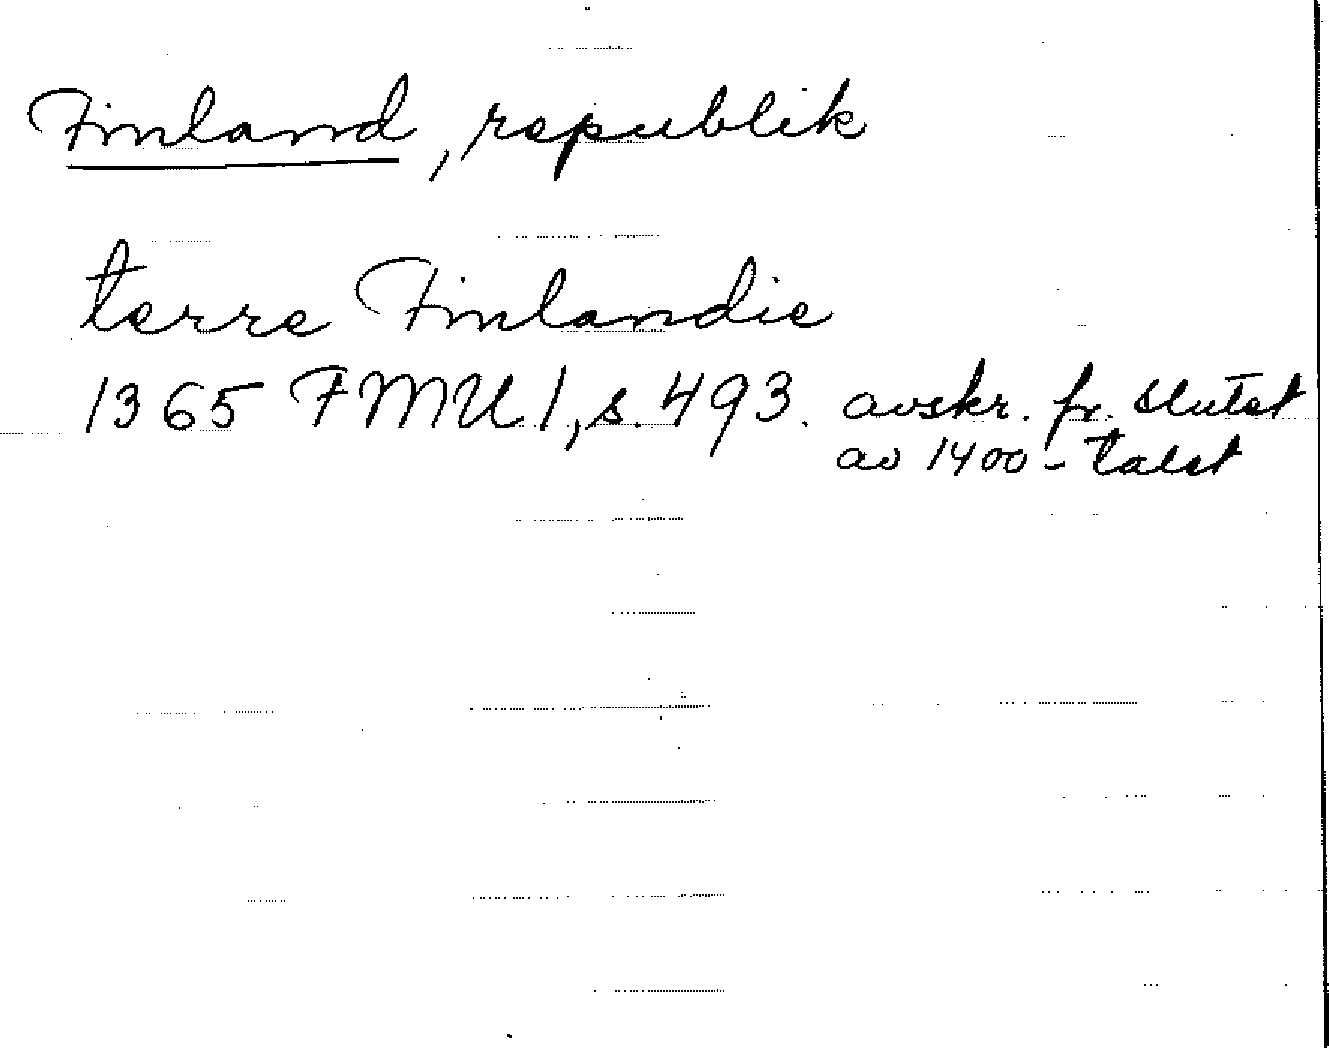 Finland, republik
terre Finlandie
1365 FMU 1, s. 493. avskr. fr. slutet
av 1400-talet